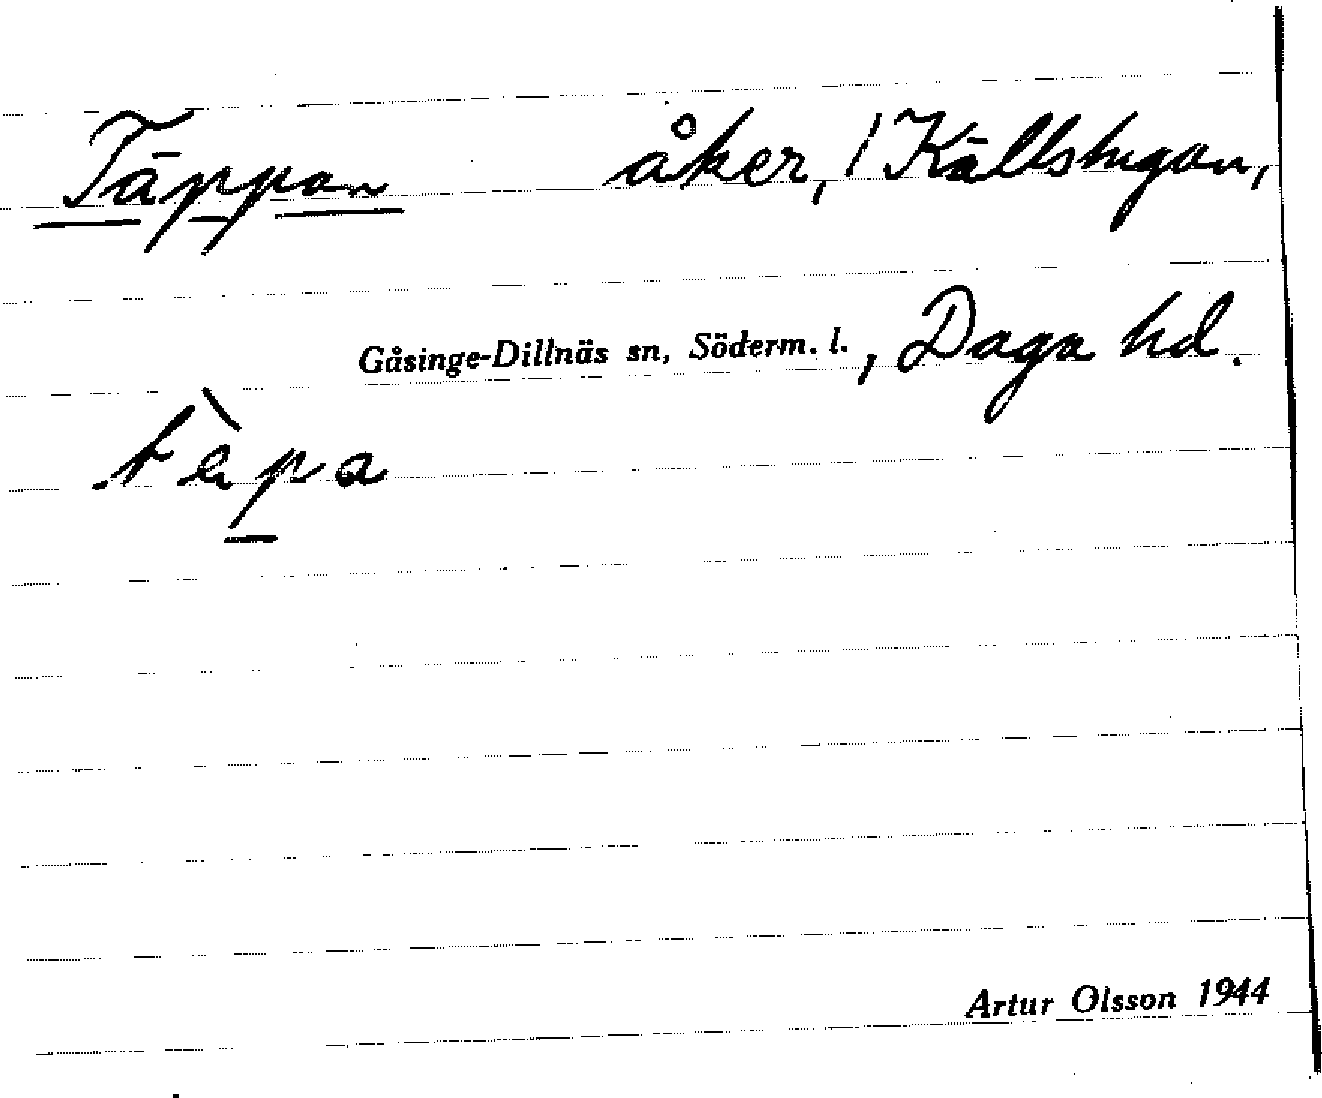 Täppan åker, / Källstugan,
Gåsinge-Dillnäs sn, Söderm. l., Daga hd.
tèpa
Artur Olsson 1944